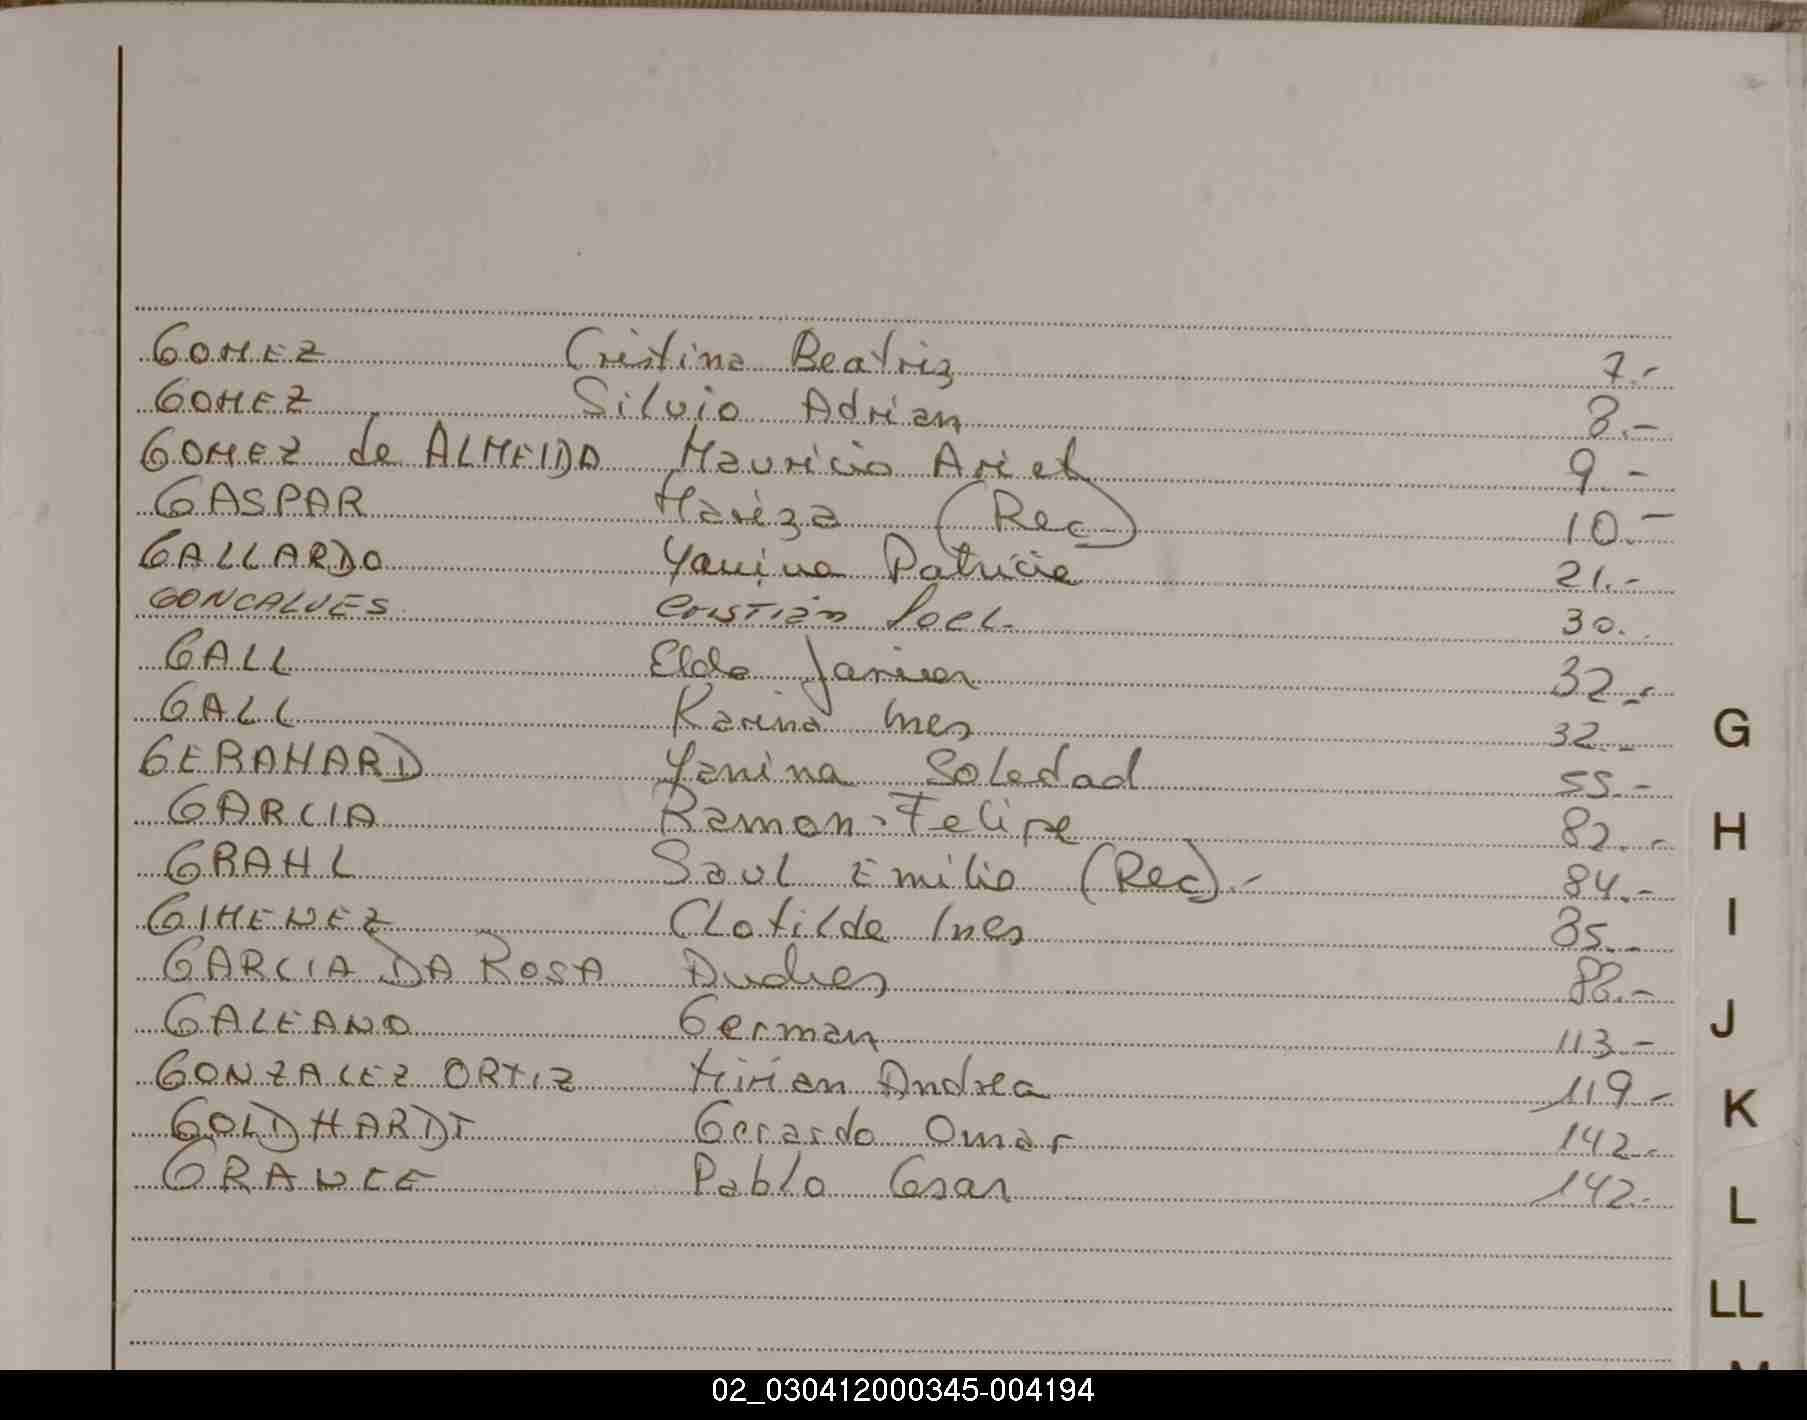 GOMEZ Cristina Beatriz 7.-
GOMEZ Silvio Adrian 8.-
GOMEZ de ALMEIDA Mauricio Ariel 9.-
GASPAR Mariza (Rec) 10.-
GALLARDO Yanina Patricia 21.-
GONCALVES Cristián Joel. 30.
GALL Elda 32.-
GALL Karina Ines 32.-
GERAHARD Yanina Soledad 55.-
GARCIA Ramon Felipe 82.-
GRAHL Saul Emilio (Rec).- 84.-
GIMENEZ Clotilde Ines 85.-
GARCIA DA ROSA Andres 88.-
GALEANO German 113.-
GONZALEZ ORTIZ Mirian Andrea 119.-
GOLDHARDT Gerardo Omar 142.-
GRANCE Pablo Cesar 142.-
G
H
I
J
K
L
LL
02_030412000345-004194